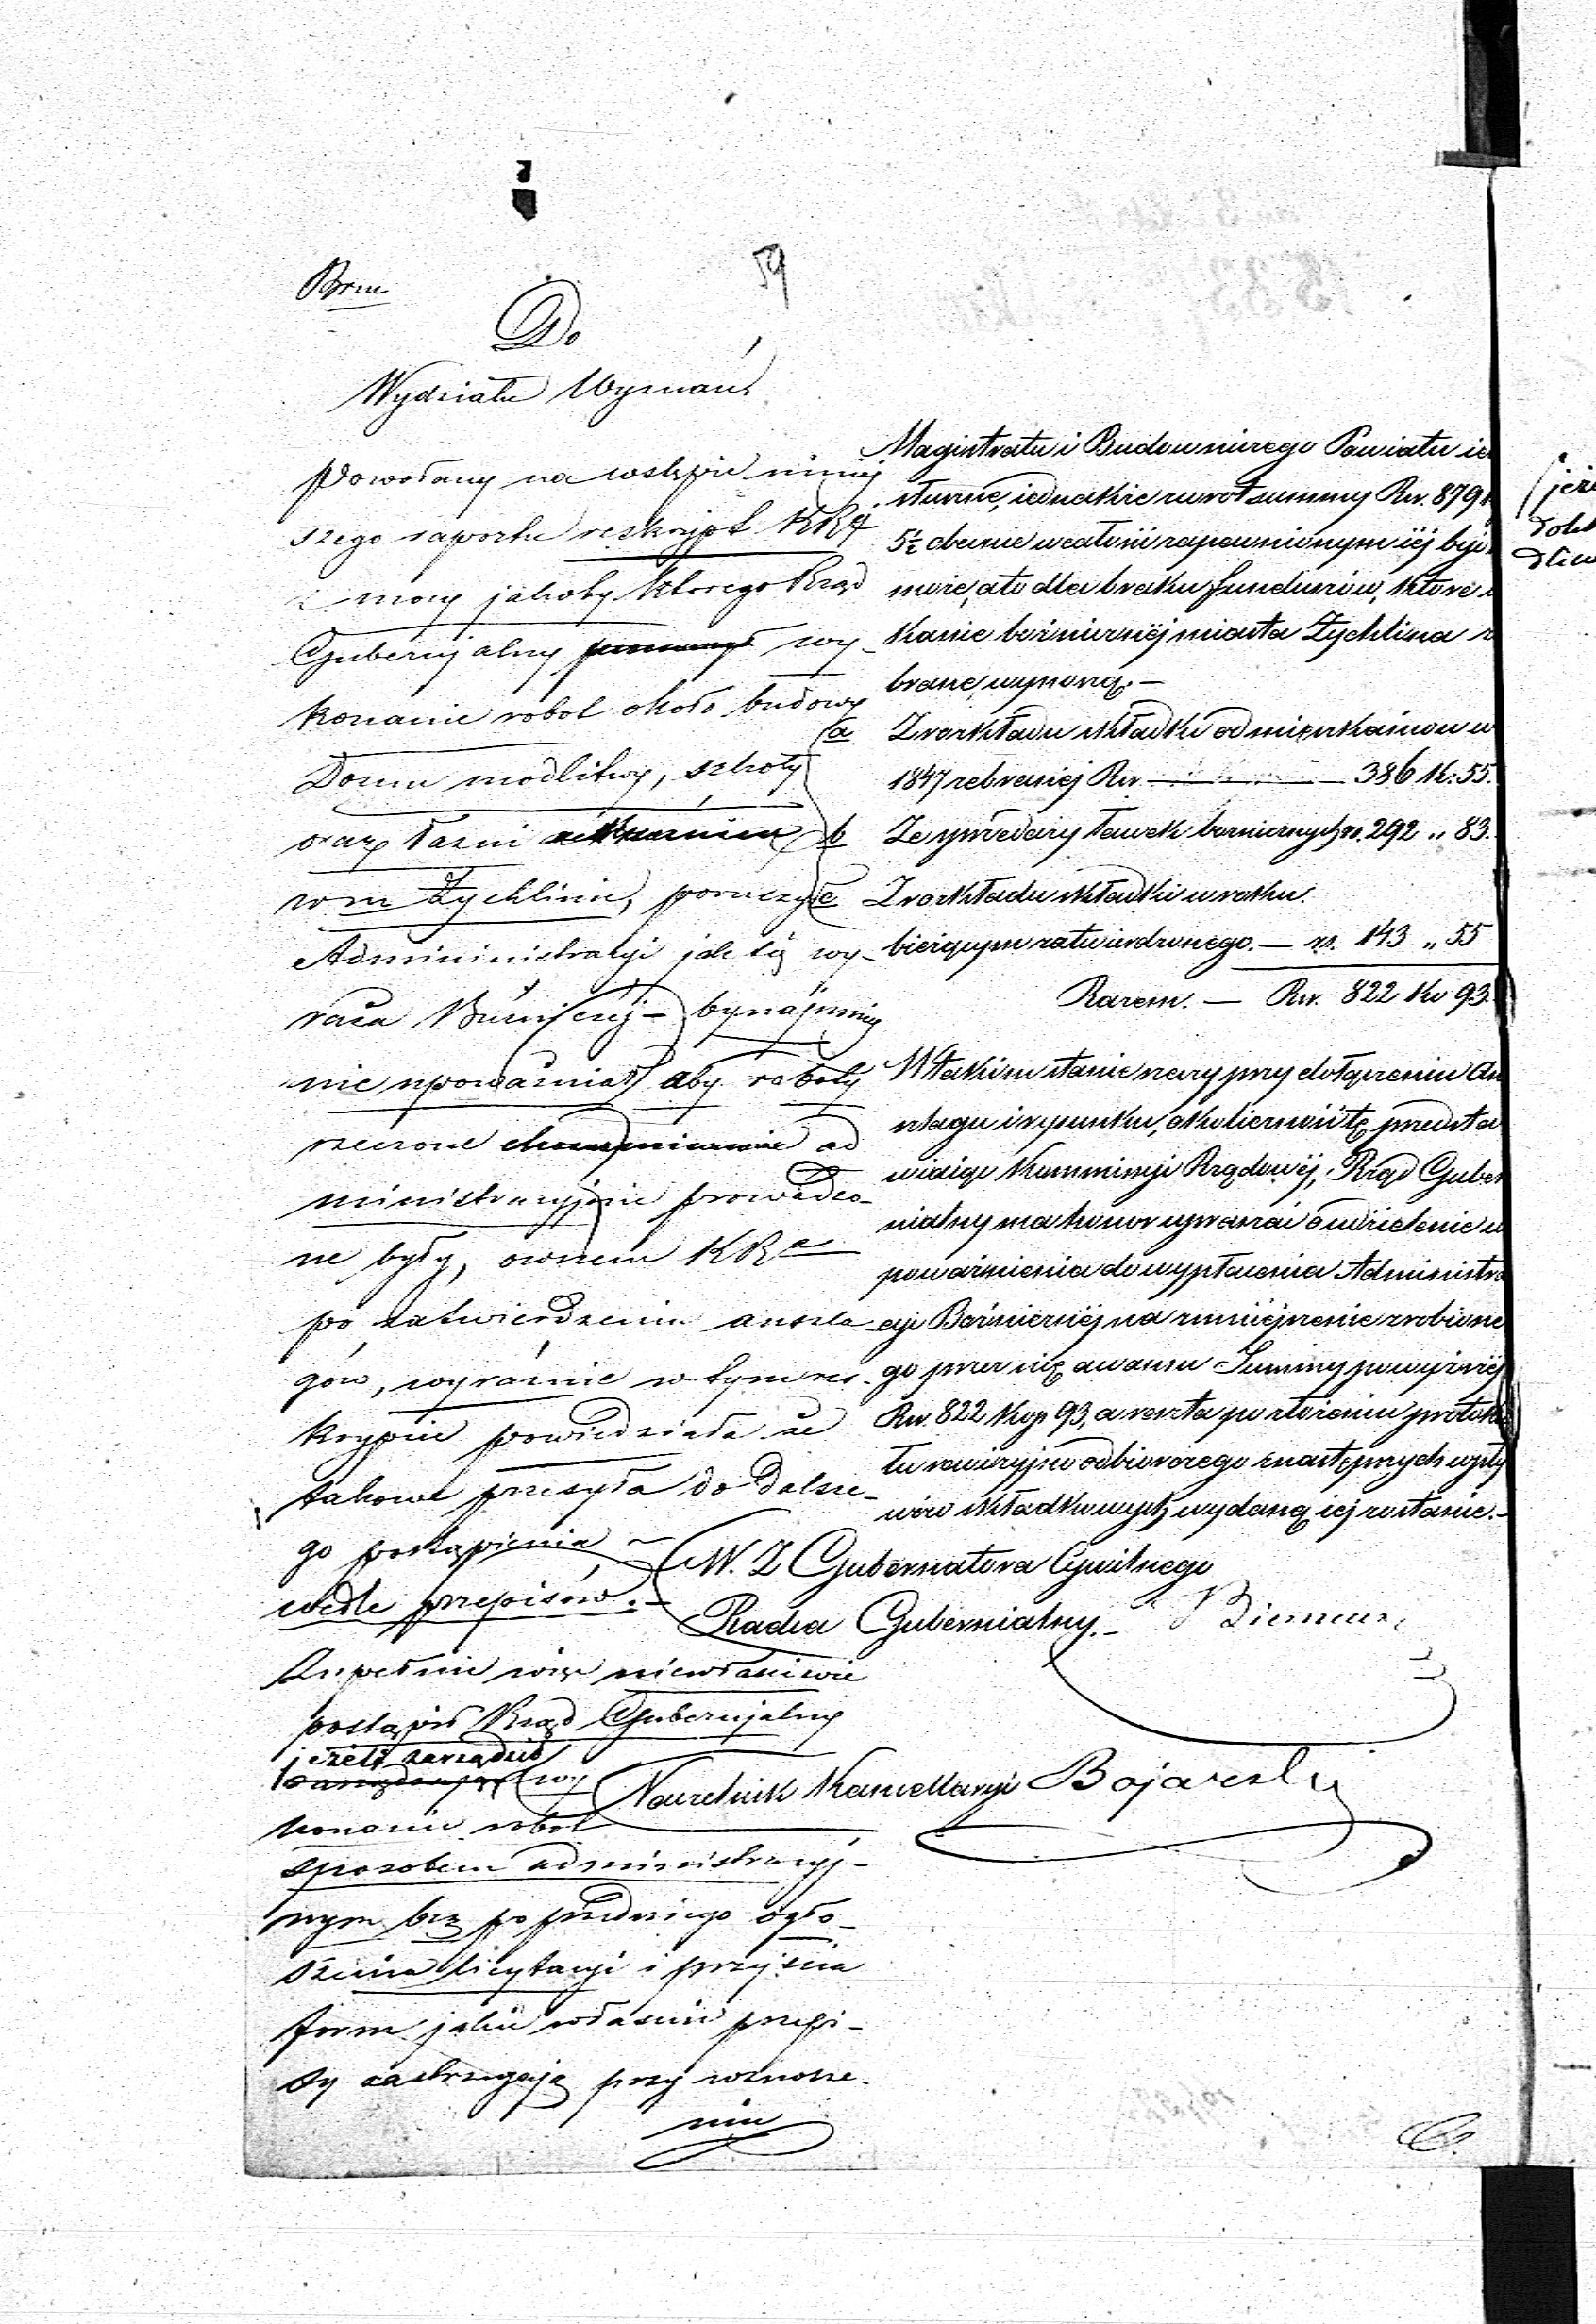 59
Brm
Do
Wydziału Wyznań
Powołany na wstępie niniej
szego raportu reskrypt KRz
z mocy jakoby którego Rząd
Gubernjalny wy-
konanie robot około budowy
Domu modlitwy, szkoły
oraz łazni
w m Żychlinie, poruczył
Admininistracyi jak się wy-
raża Bużniczej - bynajmniej
nie upoważniał aby roboty
rzeczone ad
ministracyjnie prowadzo-
ne były, owszem KRa
po zatwierdzeniu anszla-
gów, wyraźnie w tym res-
krypcie powiedziała że
takowe przesyła do dalsze-
go postąpienia
wedle przepisów.-
Zupełnie więc niewłaściwie
postąpił Rząd Gubernjalny
jeżeli zarządził
wy
konanie robot
sposobem administracyj-
nym bez poprzedniego ogło-
szenia licytacyi i przejścia
form jakie właśnie przepi-
sy zastrzegają przy wznosze-
niu
Magistratu i Budowniczego Powiatu ie
sławne, iednakże zwrot summy Rsr. 879
5½ obecnie w całości zapewnionym iéj być
może, a to dla braku funduszów, które
Kassie bożniczéj miasta Żychlina z
brane wynoszą.-
a Z rozkładu składki od mieszkańców w
1847 zebranéj Rsr — 386 K: 55.
b Ze sprzedaży ławek bożnicznych rs. 292 „ 83.
c Z rozkładu składki w roku
bieżącym zatwierdzonego.— rs. 143 „ 55
Razem.— Rsr. 822 Ko 93.
W takim stanie rzeczy przy dołączeniu An
szlagu i rysunku, okoliczność tę przedsta
wiaiąc Kommissyi Rządowéj, Rząd Guber
nialny ma honor upraszać o udzielenie u
poważnienia do wypłacenia Administra
cyi Bożniczéj na zmniejszenie zrobione
go przez nię awansu Summy powyższéj
Rsr. 822 Kop 93, a reszta po złożeniu protokó
łu rewizyjno odbiorczego z następnych wpły
wów składkowych wydaną iej zostanie.-
W. Z Gubernatora Cywilnego
Radca Gubernialny.-
Naczelnik Kancellaryi